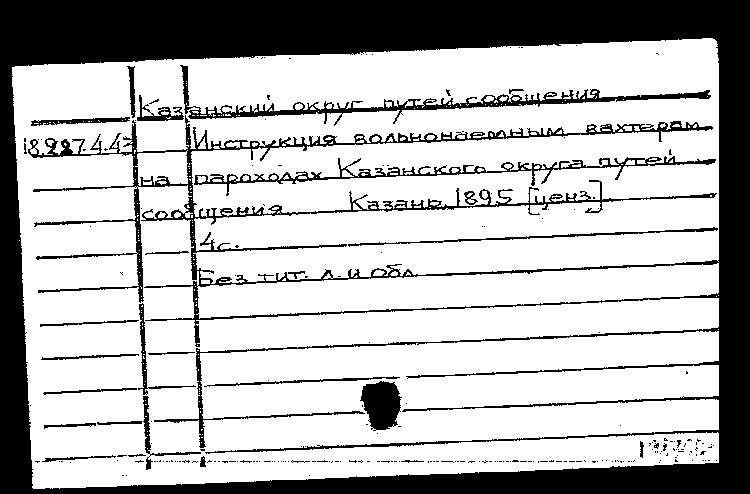 Казанский округ путей сообщения
18.227.4.43 Инструкция вольнонаемным вахтерам
на пароходах Казанского округа путей
сообщения Казань 1895 [ценз.]
4с.
Без тит. л. и обл.